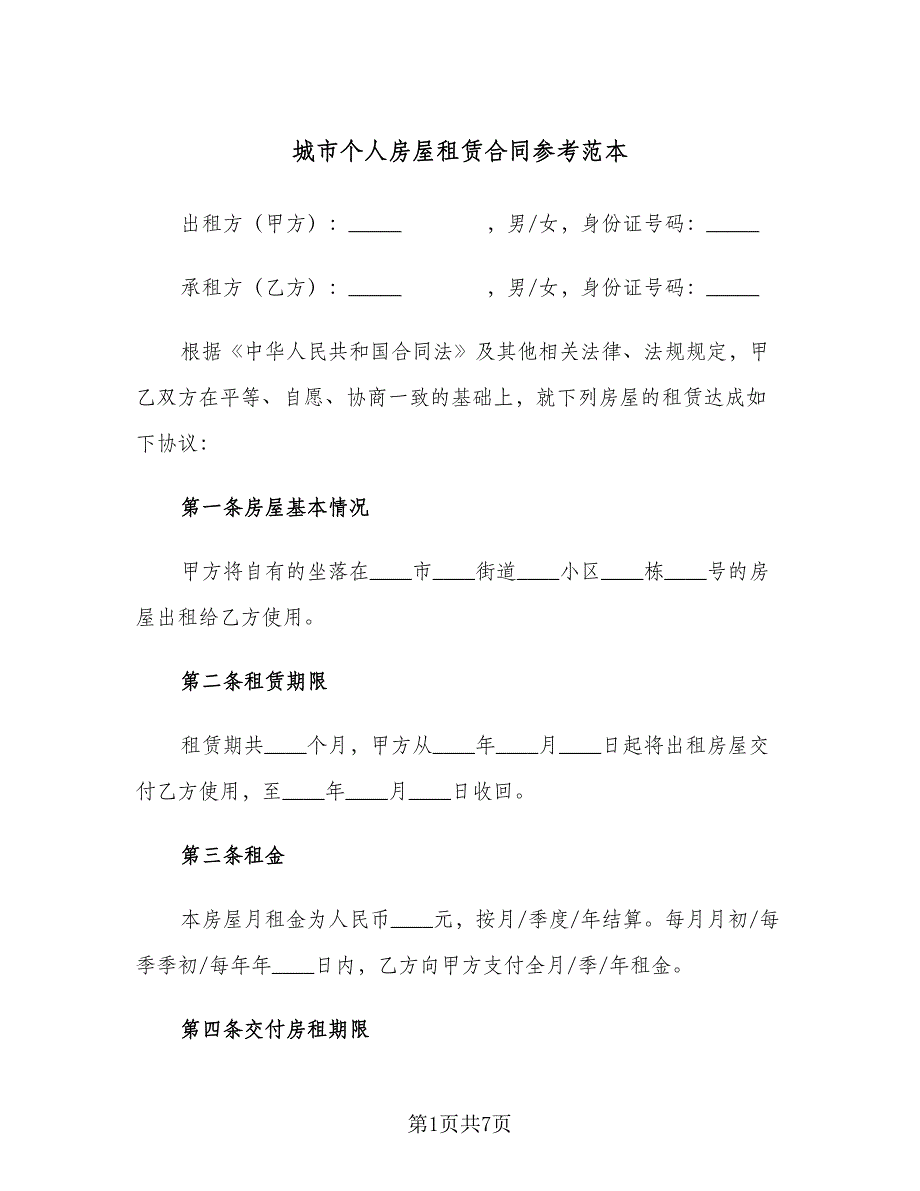 城市个人房屋租赁合同参考范本
出租方（甲方）：_____ ，男/女，身份证号码：_____
承租方（乙方）：_____ ，男/女，身份证号码：_____
根据《中华人民共和国合同法》及其他相关法律、法规规定，甲
乙双方在平等、自愿、协商一致的基础上，就下列房屋的租赁达成如
下协议：
第一条房屋基本情况
甲方将自有的坐落在____市____街道____小区____栋____号的房
屋出租给乙方使用。
第二条租赁期限
租赁期共____个月，甲方从____年____月____日起将出租房屋交
付乙方使用，至____年____月____日收回。
第三条租金
本房屋月租金为人民币____元，按月/季度/年结算。每月月初/每
季季初/每年年____日内，乙方向甲方支付全月/季/年租金。
第四条交付房租期限
第1页共7页